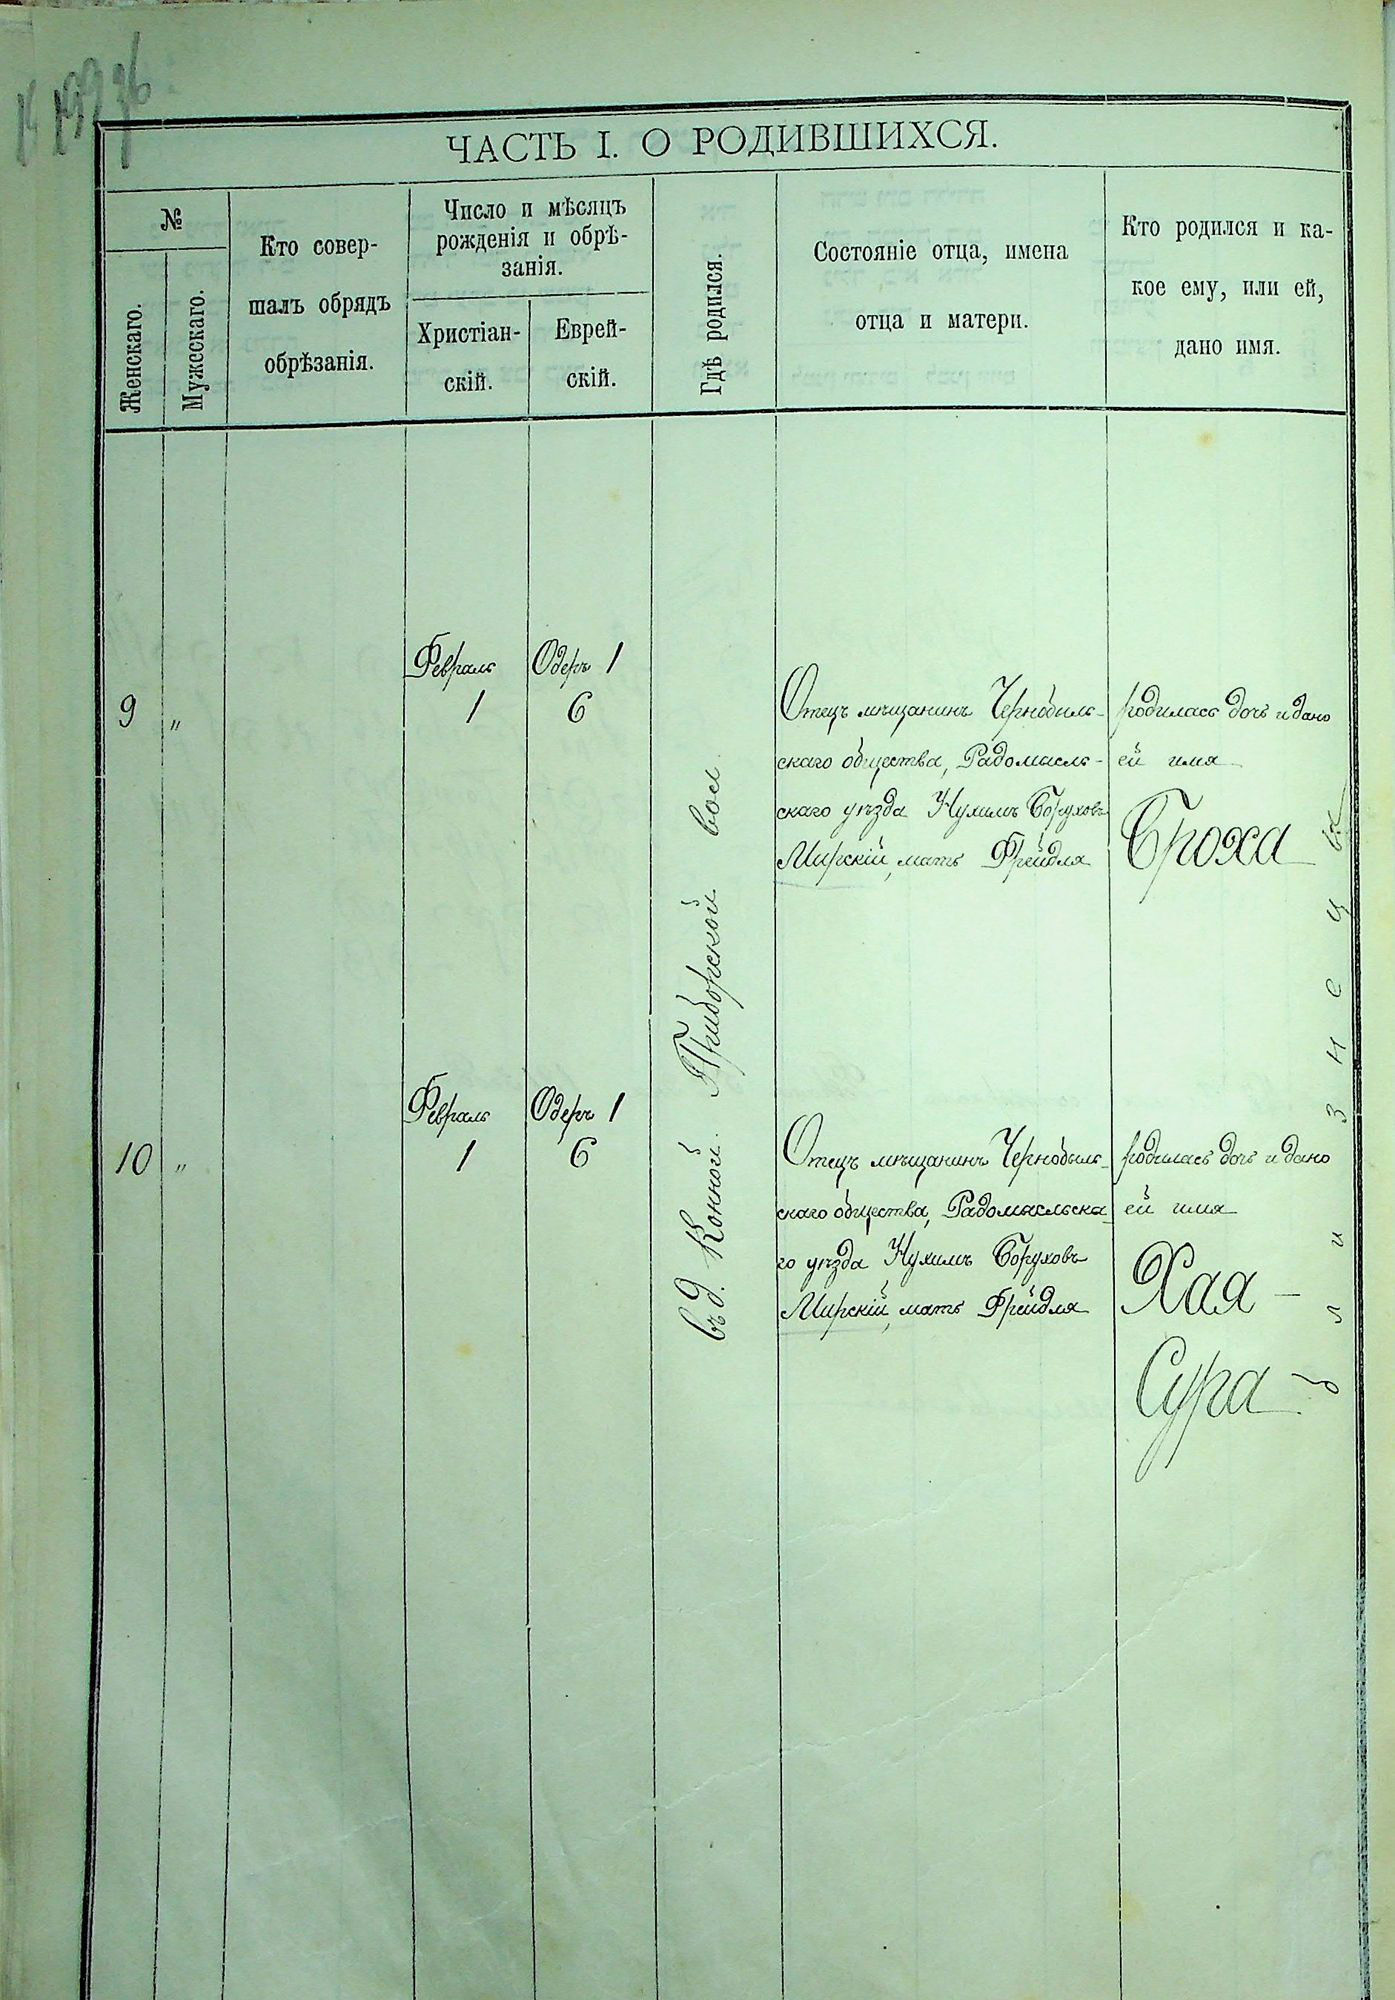 ЧАСТЬ I. О РОДИВШИХСЯ.
№
Женскаго.
Мужескаго.
Кто совер-
шалъ обрядъ
обрѣзанія.
Число и мѣсяцъ
рожденія и обрѣ-
занія.
Христіан-
скій.
Еврей-
скій.
Гдѣ родился.
Состояніе отца, имена
отца и матери.
Кто родился и ка-
кое ему, или ей,
дано имя.
9 "
Февраль
1
Одеръ 1
6
Отецъ мѣщанинъ Чернобыль-
скаго общества, Радомысль-
скаго уѣзда Нухимъ Боруховъ
Мирскій, мать Фрейдля
родилась дочь и дано
ей имя
Броха
въ д. Конной. Приборской вол.
близнецы
10 "
Февраль
1
Одеръ 1
6
Отецъ мѣщанинъ Чернобыль-
скаго общества, Радомысльска-
го уѣзда Нухимъ Боруховъ
Мирскій, мать Фрейдля
родилась дочь и дано
ей имя
Хая-
Сура